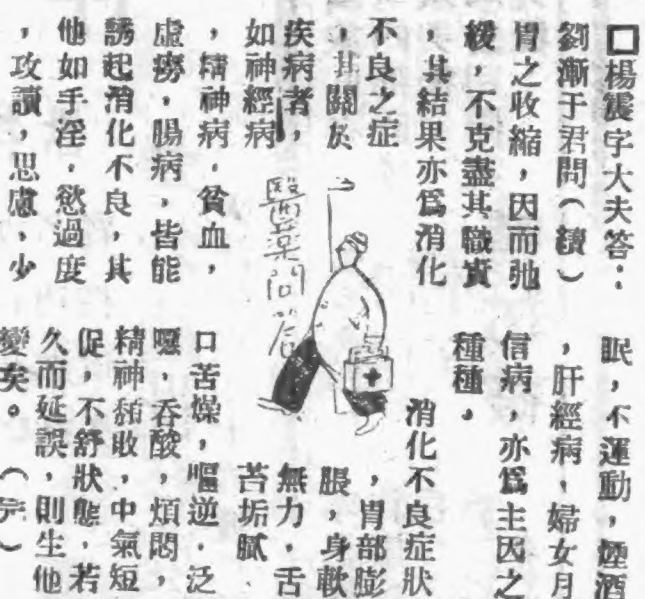 □楊震宇大夫答：
劉漸于君問（續）
胃之收縮，因而弛
緩，不克盡其職責
，其結果亦爲消化
不良之症
，其關於
疾病者，
如神經病
，精神病．貧血，
虛癆，腸病，皆能
誘起消化不良，其
他如手淫．慾過度
，攻讀，思慮，少
眠，不運動，煙酒
，肝經病，婦女月
信病，亦爲主因之
種種，
消化不良症狀
，胃部膨
脹，身軟
無力，舌
苦垢膩
口苦燥，嘔逆．泛
噁，吞酸，煩悶，
精神頹敗，中氣短
促，不舒狀態，若
久而延誤，則生他
變矣。（完）
醫藥問答